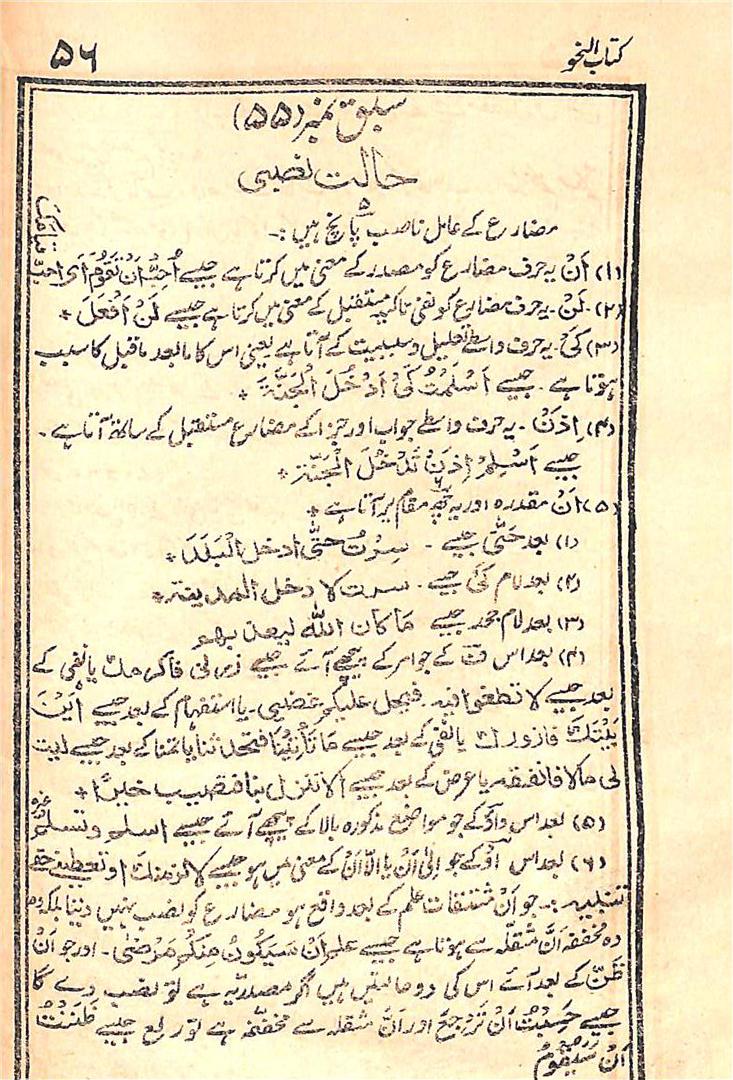 کتاب النحو
۵۶
سبق نمبر (۵۵)
حالت نصبی
مضارع کے عامل ناصب ۵ پانچ ہیں :۔
(۱) اَنْ یہ حرف مضارع کو مصدر کے معنی میں کرتا ہے جیسے اُحِبُّ اَنْ تَقُوْمَ اَی احب
قیامک
(۲) لَنْ ۔ یہ حرف مضارع کو نفی تاکید مستقبل کے معنی میں کرتا ہے جیسے لَنْ اَفْعَلَ ٭
(۳) کَیْ ۔ یہ حرف واسطے تعلیل و سببیت کے آتا ہے یعنی اس کا مابعد ماقبل کا سبب
ہوتا ہے ۔ جیسے اَسْلَمْتُ کَیْ اَدْخُلَ الْجَنَّةَ ٭
(۴) اِذَنْ ۔ یہ حرف واسطے جواب اور جزا کے مضارع مستقبل کے ساتھ آتا ہے ۔
جیسے اَسْلِمْ اِذَنْ تَدْخُلَ الْجَنَّةَ ٭
(۵) اَنْ مقدرہ اور یہ ۶ چھ مقام پر آتا ہے ٭
(۱) بعد حَتّٰی جیسے ۔ سِرْتُ حَتّٰی ادخل الْبَلَدَ ٭
(۲) بعد لام کَیْ جیسے ۔ سرت لادخل المدینة ٭
(۳) بعد لام جحد جیسے مَا کان اللّٰہ لیعذبھم
(۴) بعد اس فَ کے جو امر کے پیچھے آئے جیسے زرنی فاکرمك یا نہی کے
بعد جیسے لا تطغوا فیہ فیحل علیکم غضبی ۔ یا استفہام کے بعد جیسے اَیْنَ
بَیْتُكَ فازورك یا نفی کے بعد جیسے مَا تَأْتِیْنَا فتحدثنا یا تمنا کے بعد جیسے لیت
لی مالا فانفقہ یا عرض کے بعد جیسے الا تنزل بنا فتصیب خیرًا ٭
(۵) بعد اس واؤ کے جو مواضع مذکورہ بالا کے پیچھے آئے جیسے اسلم وتسلم
وغیرہ
(۶) بعد اس اَوْ کے جو اِلٰی اَنْ یا اِلَّا اَنْ کے معنی میں ہو جیسے لالزمنك او تعطینی حقی
تنبیہ :۔ جو اَنْ مشتقات علم کے بعد واقع ہو مضارع کو نصب نہیں دیتا بلکہ وہ
مخففہ اَنَّ مثقلہ سے ہوتا ہے جیسے علم اَنْ سَیَکُوْنُ مِنْکُمْ مَرْضٰی ۔ اور جو اَنْ
ظَنّ کے بعد آئے اس کی دو حالتیں ہیں اگر مصدریہ ہے تو نصب دے گا
جیسے حَسِبْتُ اَنْ تَرْجِعَ اور اَنَّ مثقلہ سے مخففہ ہے تو رفع جیسے ظَنَنْتُ
اَنْ سَیَقُوْمُ